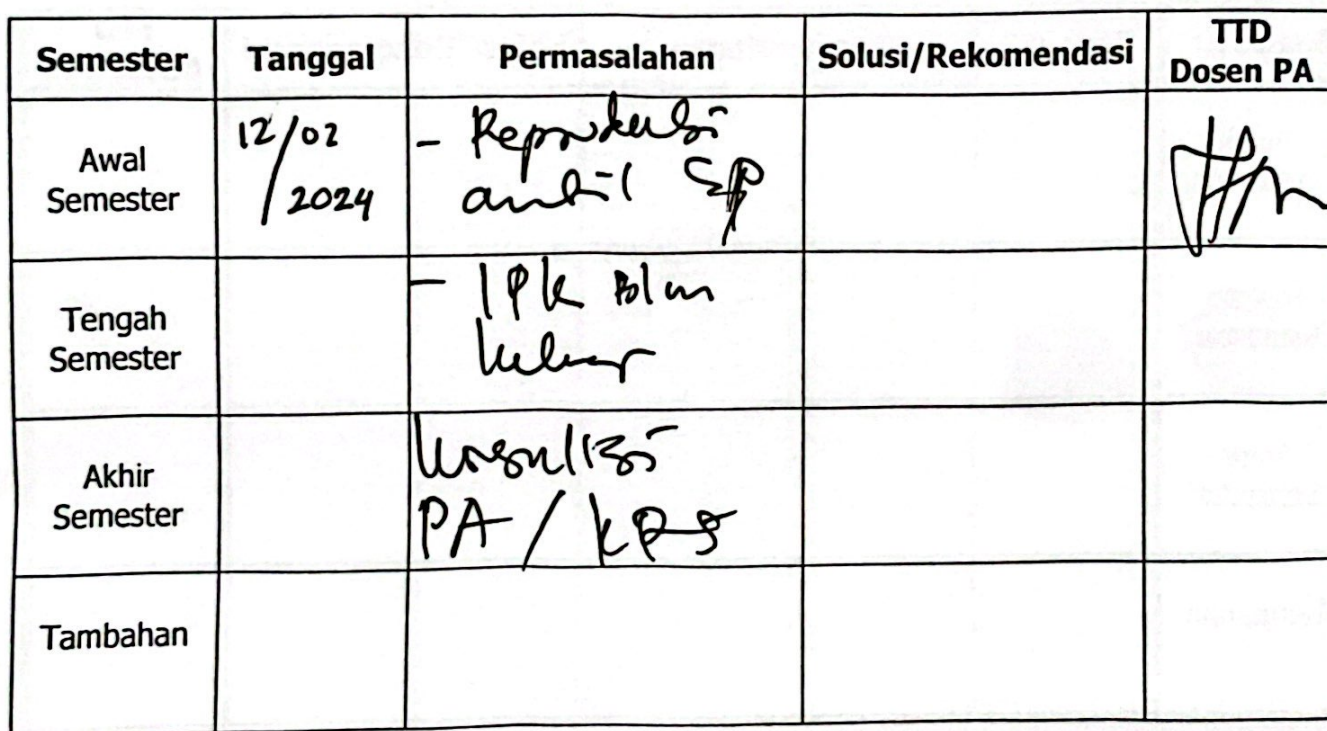 Semester Tanggal Permasalahan Solusi/Rekomendasi TTD
Dosen PA
Awal
Semester
12/02
/2024
- Reproduksi
ambil SP
Tengah
Semester
- IPK Blm
keluar
Akhir
Semester
PA / KRS
Tambahan